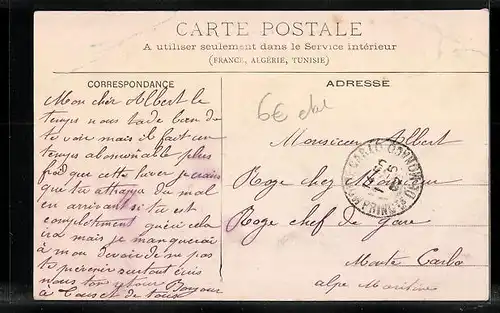 CARTE POSTALE
A utiliser seulement dans le Service intérieur
(FRANCE, ALGÉRIE, TUNISIE)
CORRESPONDANCE
Mon cher Albert le
temps nous tade bien de
te voir mais il fait un
temps abominable plus
froid que cette hiver je crains
que tu attrapes du mal
en arrivant si tu est
completment guéri cela
ira mais je manquerai
à mon devoir de ne pas
te prévenir surtout écris
nous ton retour Bonjour
à tous et de tous
ADRESSE
6€
Monsieur Albert
Roge chez Monsieur
Roge chef de Gare
Monte Carlo
alpe Maritime
MONTE CARLO
PRINCTÉ DE MONACO